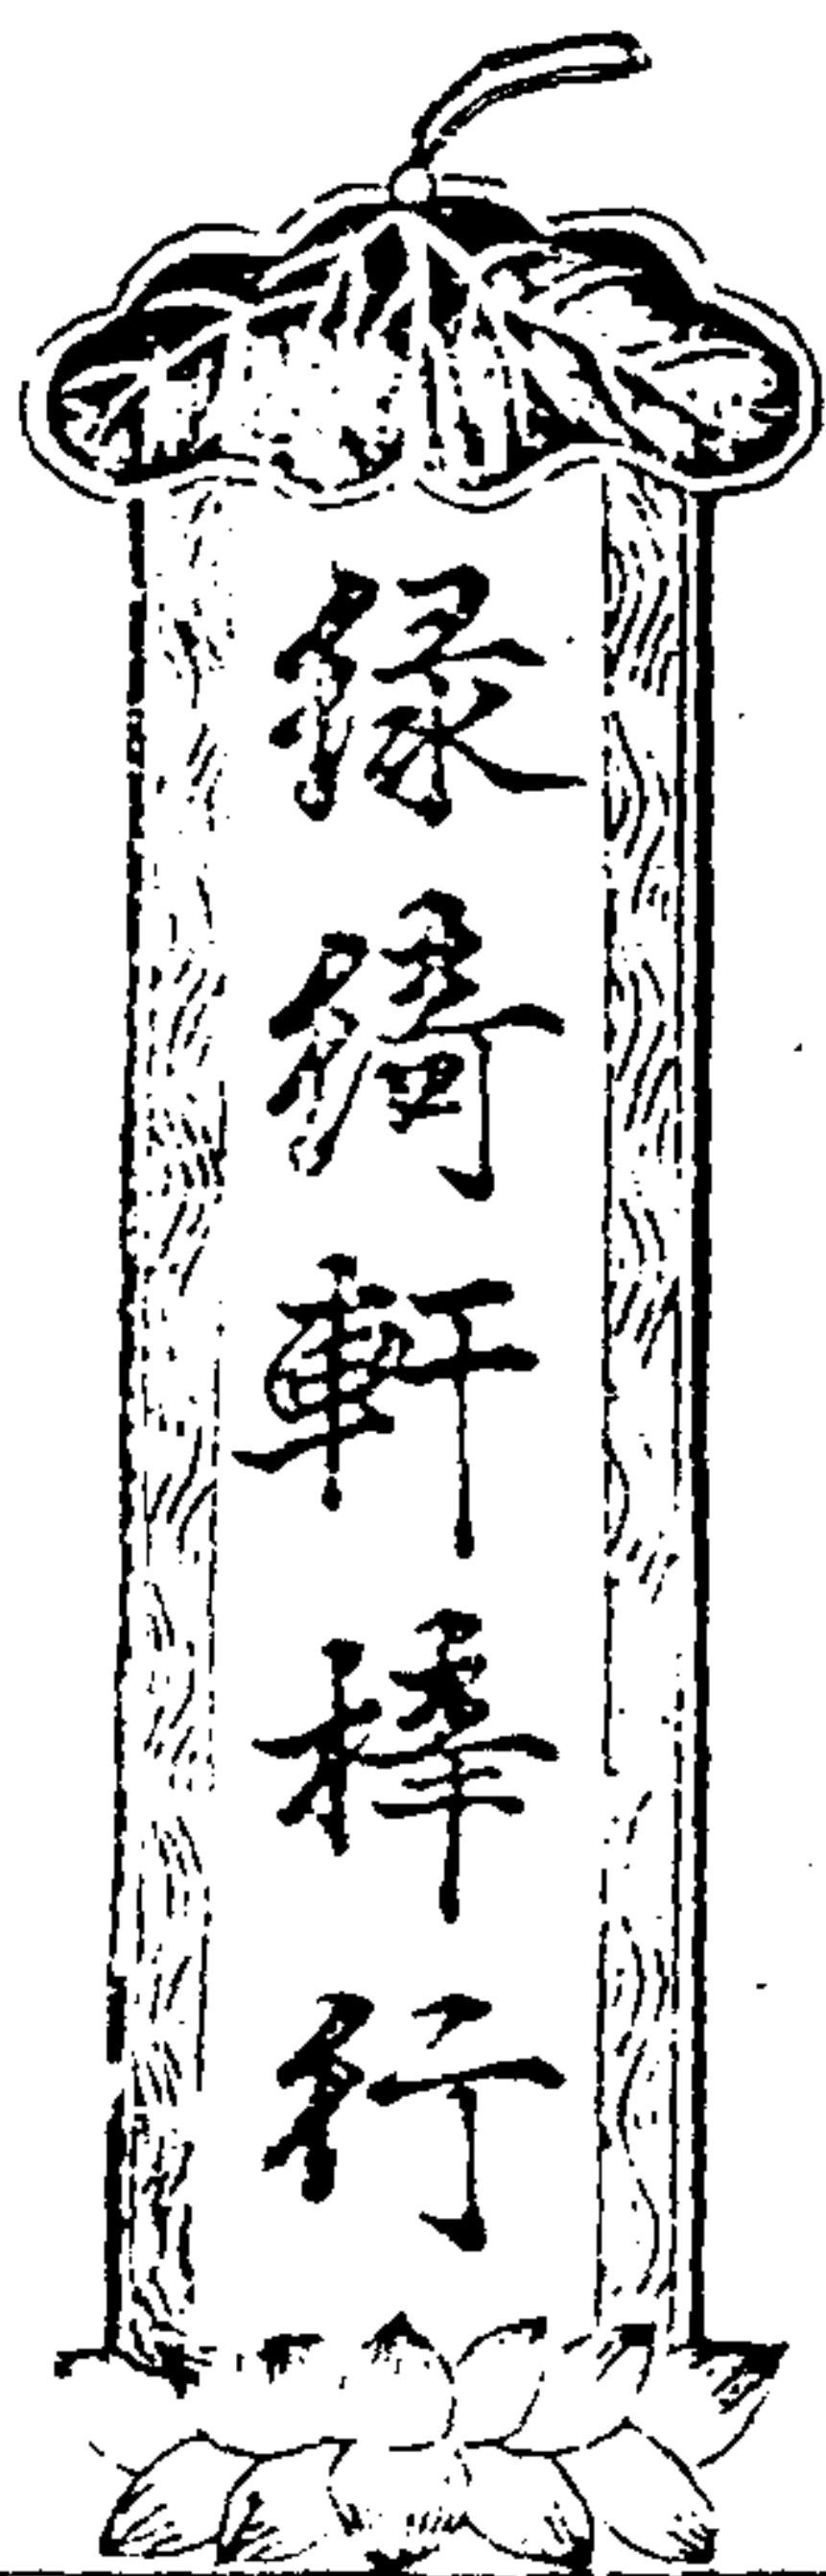 緑綺軒梓行